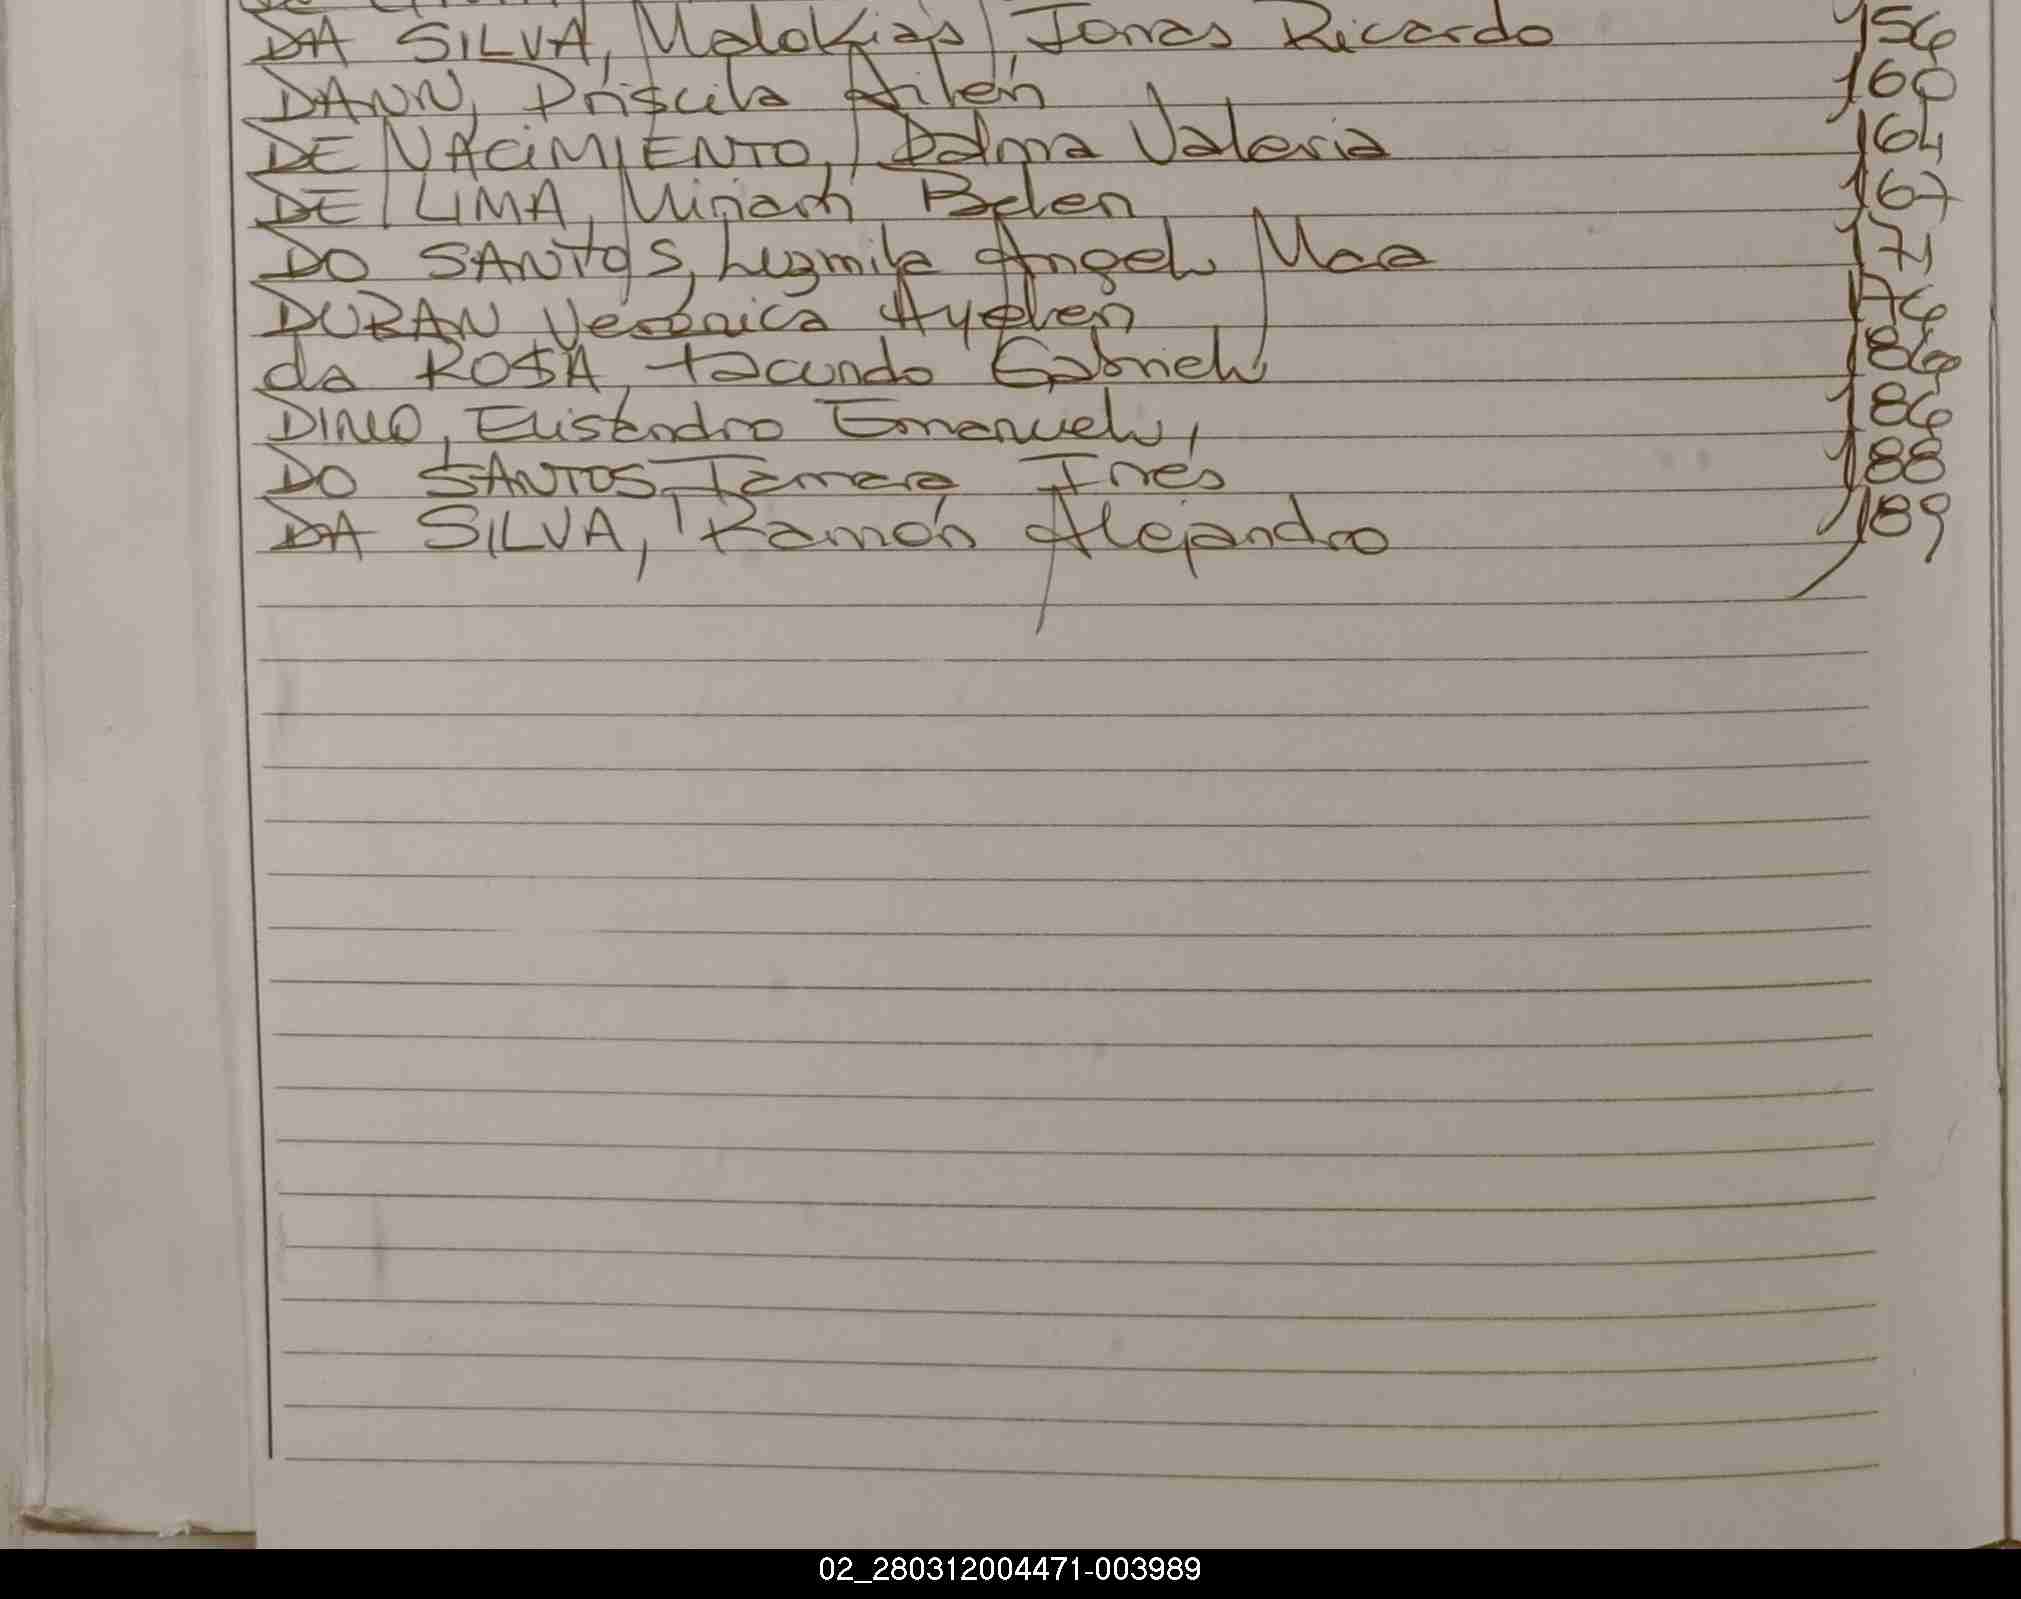 DA SILVA, Malokias Jonas Ricardo 156
DANN, Priscila Ailén 160
DE NACIMIENTO, Dalma Valeria 164
DE LIMA, Miriam Belen 167
DO SANTOS, Luzmila Angel 171
DURAN Verónica Ayelen 176
da ROSA, Facundo Gabriel 186
DINIO, Elisandro Emanuel, 186
DO SANTOS, Tamara Inés 188
DA SILVA, Ramón Alejandro 189
02_280312004471-003989